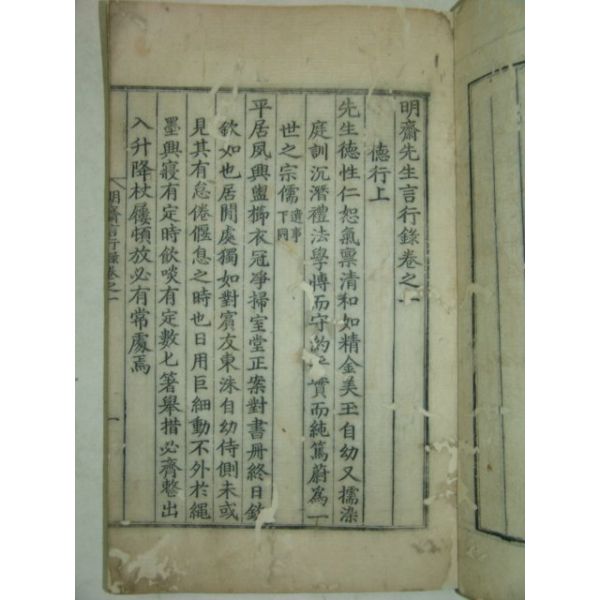 明齋先生言行錄卷之一
德行上
先生德性仁恕氣稟清和如精金美玉自幼又擩染
庭訓沉潛禮法學博而守約 實而純篤蔚爲一
世之宗儒遺事下同
平居夙興盥櫛衣冠凈掃室堂正案對書冊終日欽
欽如也居閒處獨如對賓友東洙自幼侍側未或
見其有怠倦偃息之時也日用巨細動不外於繩
墨興寢有定時飲啖有定數匕箸舉措必齊整出
入升降杖屨頓放必有常處焉
明齋言行錄卷之一
一